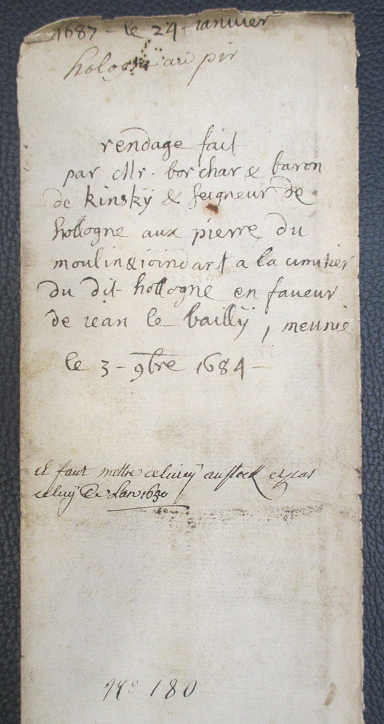 1687 - le 24 janvier
hologne au pir
rendage fait
par Mr. borchar & baron
de kinskÿ & seigneur de
hollogne aux pierre du
moulin & joindant a la cimitier
du dit hollogne en faveur
de iean le baillÿ, meunie
le 3 - 9bre 1684 -
il faut mettre celuicÿ au stock et pas
celuÿ De Lan 1690
No 180